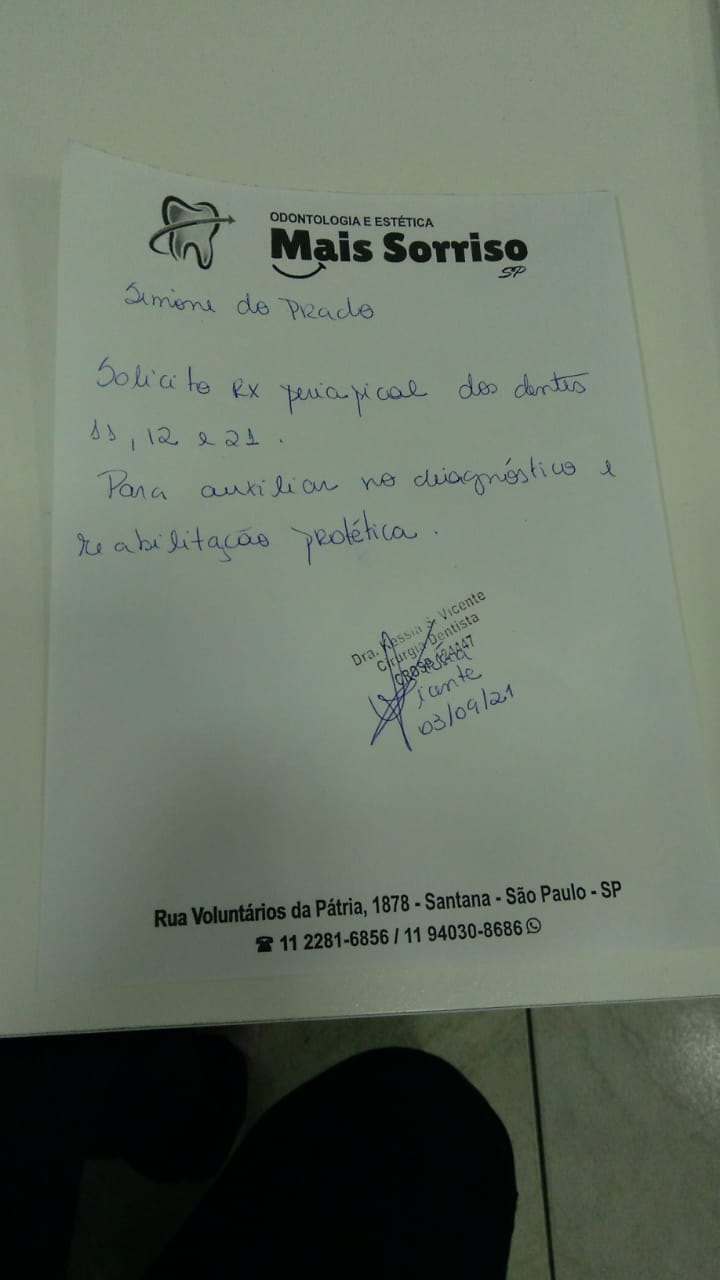 ODONTOLOGIA E ESTÉTICA
Mais Sorriso
SP
Simone do Prado
Solicito RX periapical dos dentes
11, 12 e 21.
Para auxiliar no diagnóstico e
reabilitação protética.
Dra. Kessia S. Vicente
Cirurgiã Dentista
CROSP
03/09/21
Rua Voluntários da Pátria, 1878 - Santana - São Paulo - SP
11 2281-6856 / 11 94030-8686